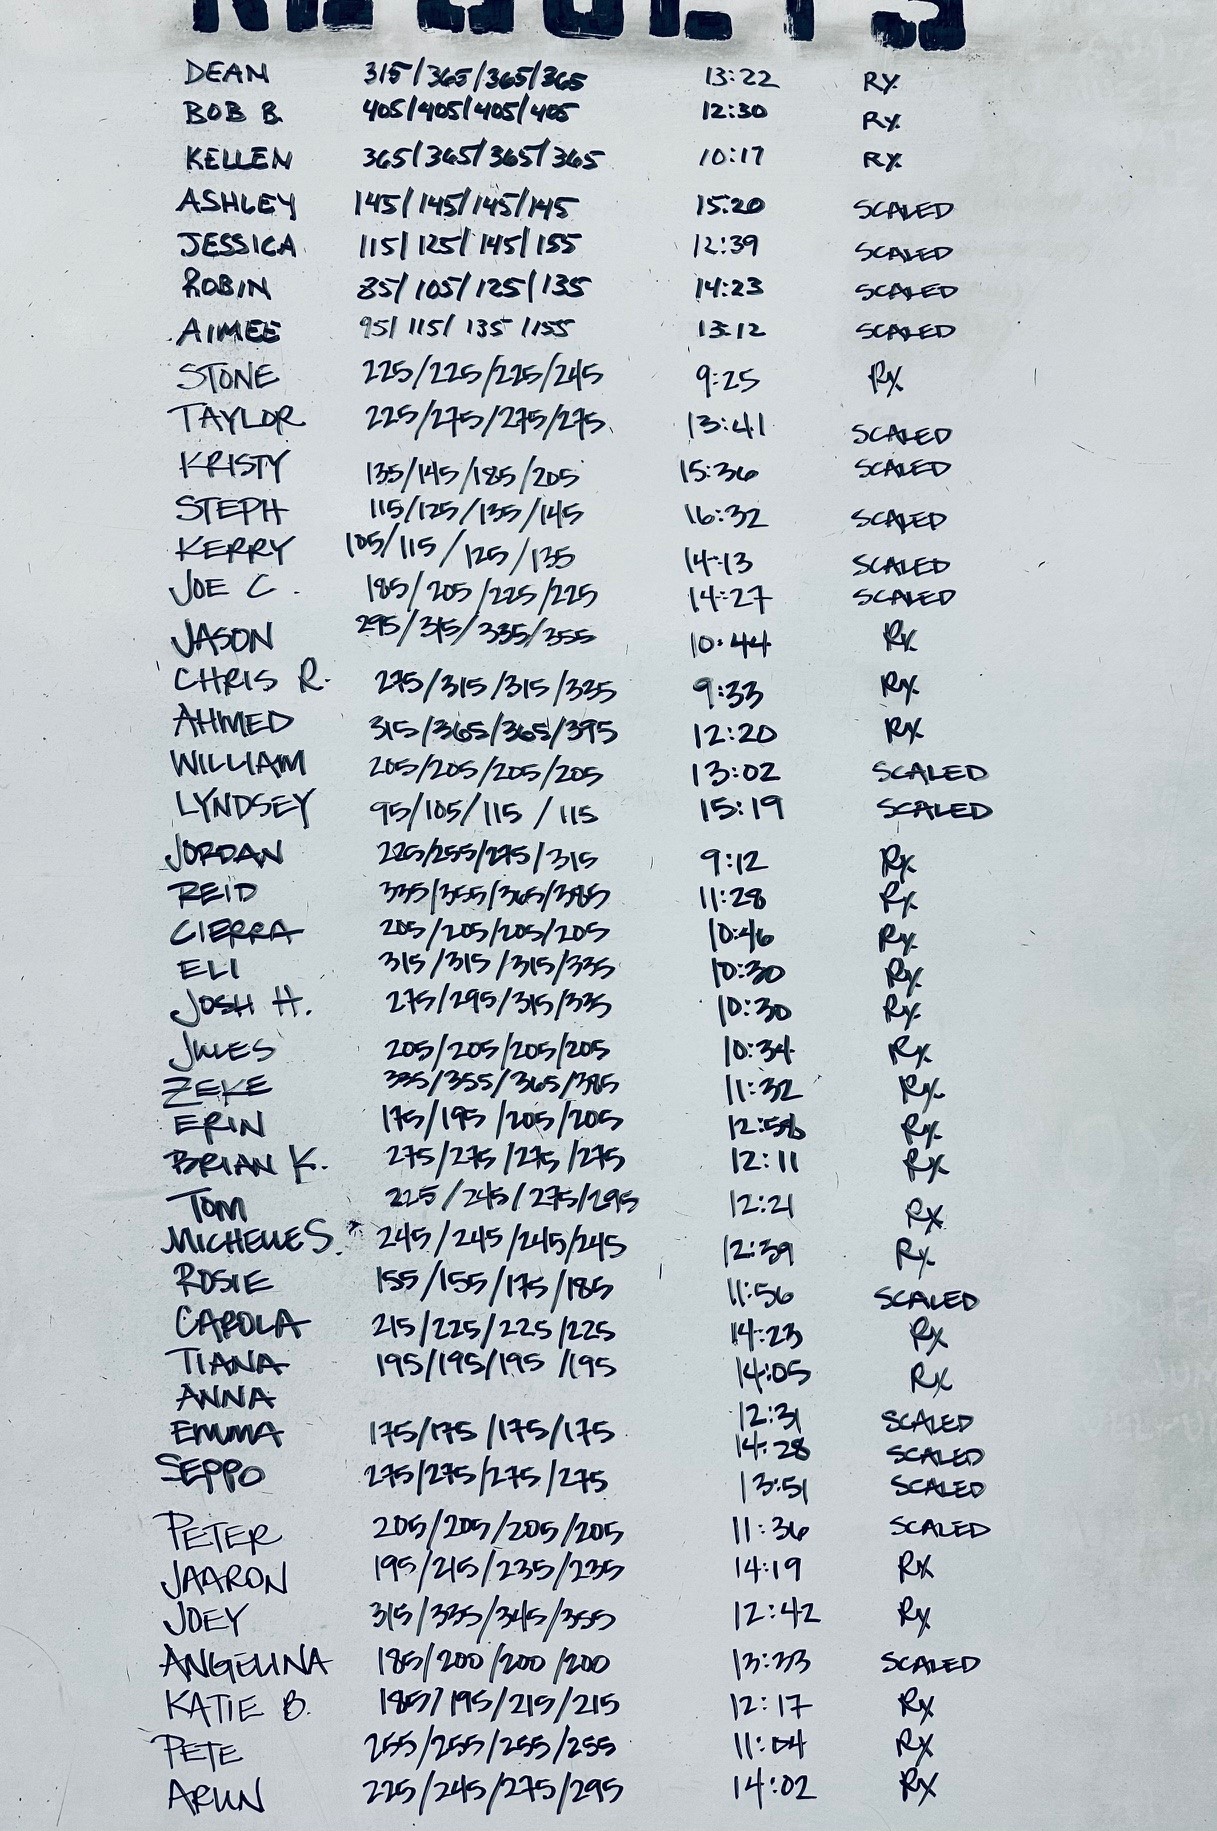 RESULTS
DEAN 315/365/365/365 13:22 RX
BOB B. 405/405/405/405 12:30 RX
KELLEN 365/365/365/365 10:17 RX
ASHLEY 145/145/145/145 15:20 SCALED
JESSICA 115/125/145/155 12:39 SCALED
ROBIN 85/105/125/135 14:23 SCALED
AIMEE 95/115/135/155 13:12 SCALED
STONE 225/225/225/245 9:25 RX
TAYLOR 225/275/275/275 13:41 SCALED
KRISTY 135/145/185/205 15:36 SCALED
STEPH 115/125/135/145 16:32 SCALED
KERRY 105/115/125/135 14:13 SCALED
JOE C. 185/205/225/225 14:27 SCALED
JASON 295/315/335/355 10:44 RX
CHRIS R. 275/315/315/335 9:33 RX
AHMED 315/365/365/395 12:20 RX
WILLIAM 205/205/205/205 13:02 SCALED
LYNDSEY 95/105/115/115 15:19 SCALED
JORDAN 225/255/275/315 9:12 RX
REID 335/355/365/385 11:28 RX
CIERRA 205/205/205/205 10:46 RX
ELI 315/315/315/335 10:30 RX
JOSH H. 275/295/315/335 10:30 RX
JULES 205/205/205/205 10:34 RX
ZEKE 335/355/365/385 11:32 RX
ERIN 175/195/205/205 12:58 RX
BRIAN K. 275/275/275/275 12:11 RX
TOM 225/245/275/295 12:21 RX
MICHELLE S. * 245/245/245/245 12:39 RX
ROSIE 155/155/175/185 11:56 SCALED
CAROLA 215/225/225/225 14:23 RX
TIANA 195/195/195/195 14:05 RX
ANNA 12:31 SCALED
EMMA 175/175/175/175 14:28 SCALED
SEPPO 275/275/275/275 13:51 SCALED
PETER 205/205/205/205 11:36 SCALED
JAARON 195/215/235/235 14:19 RX
JOEY 315/335/345/355 12:42 RX
ANGELINA 185/200/200/200 13:33 SCALED
KATIE B. 185/195/215/215 12:17 RX
PETE 255/255/255/255 11:04 RX
ARUN 225/245/275/295 14:02 RX